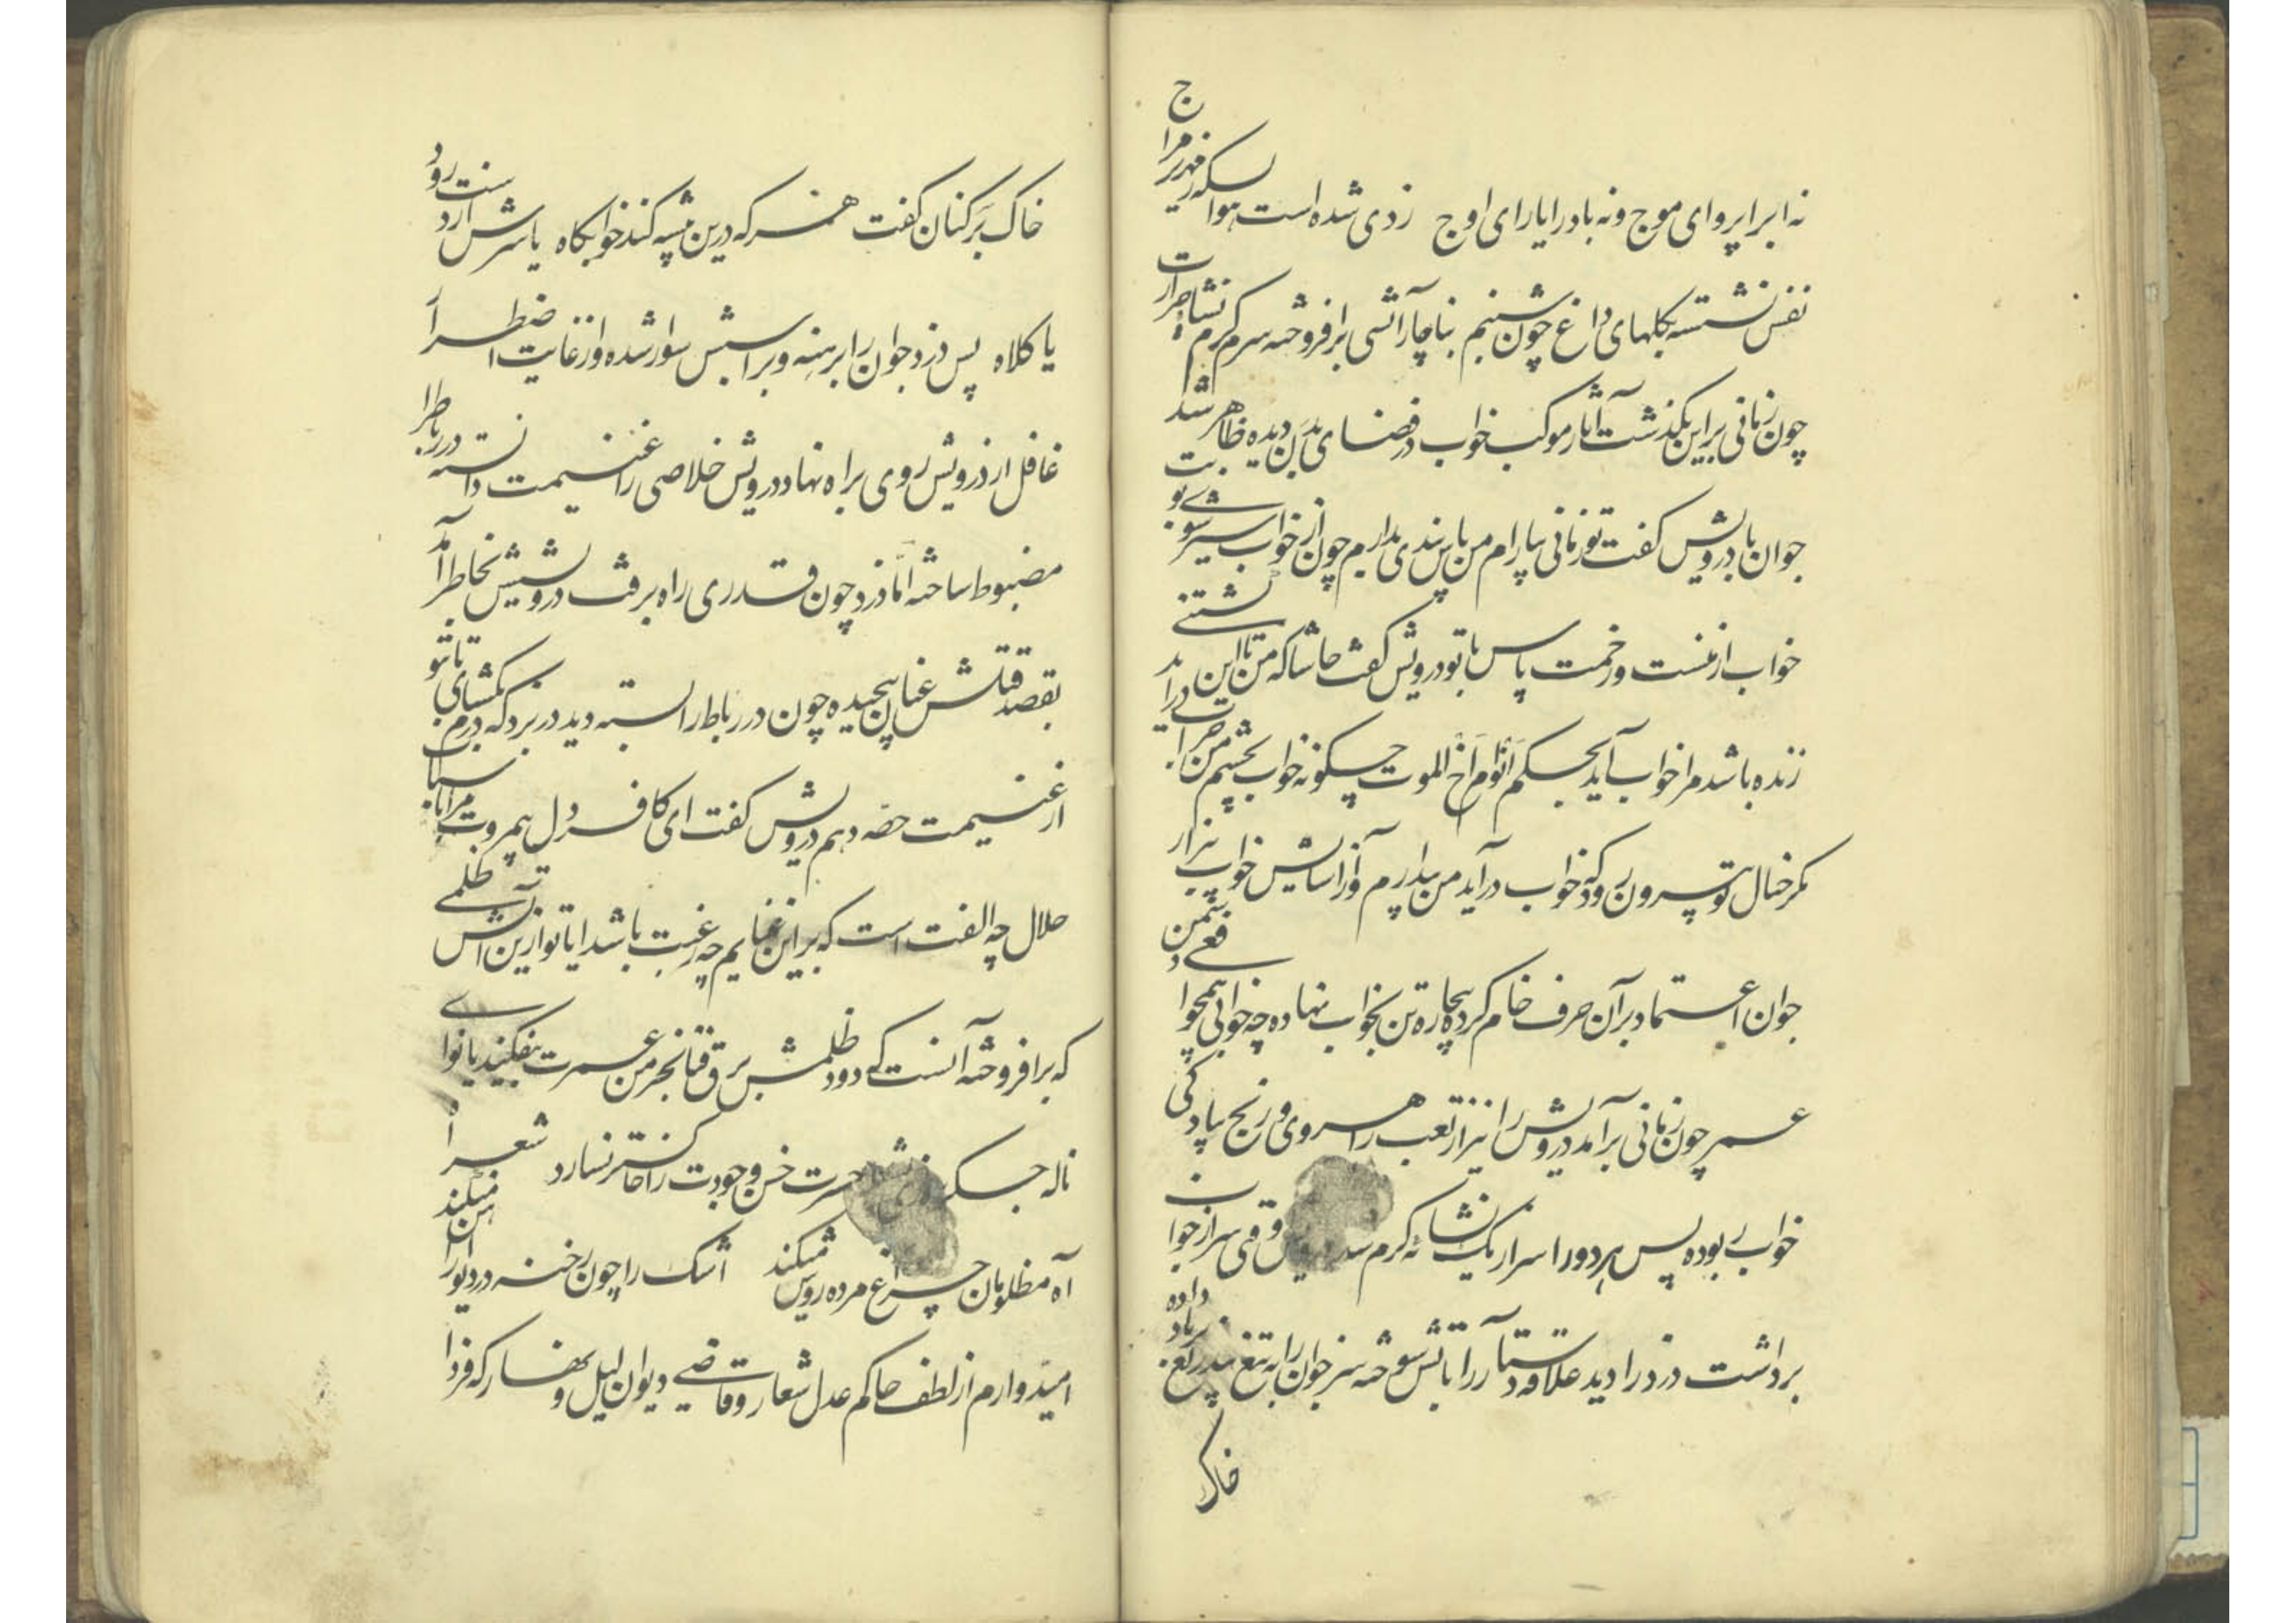 نه ابر را پروای موج و نه باد را یارای اوج ز دی شده است بسکه هوا زمهریر مزاج
نفس نشسته بگلهای داغ چون شبنم بناچار آتشی برافروخته سرگرم نشاء حرارت
چون زمانی براین بگذشت آثار موکب خواب در فضای بدن دیده ظاهر شد
جوان با درویش گفت تو زمانی بیارام من پاس بیداری بدارم چون از خواب سیر شوی نوبت
خواب از منست و زحمت پاس با تو درویش گفت حاشا که من تا این نشستنی
زنده باشد مرا خواب آید بحکم النوم اخ الموت چگونه خواب بچشم من درآید
مگر خیال تو بیرون رود که خواب درآید من بیدارم و از آسایش خواب بیزار
جوان اعتماد بر آن حرف خام کرده بیچاره تن بخواب نهاده چه خوابی همچو
عمر چون زمانی برآمد درویش را نیز از تعب راهروی و رنج پیادگی
خواب ربوده پس هر دو را سر از یک نشائه گرم شد درویش وقتی سر از خواب
برداشت دزد را دید علاقه دستار را بآتش سوخته سر جوان را به تیغ بیدریغ بباد داده
خاک
خاک بر کنان گفت هر که درین بیشه کند خوابگاه یا سرش از دست رود
یا کلاه پس دزد جوان را برهنه و بر اسبش سوار شده و از غایت اضطراب
غافل از درویش روی براه نهاد درویش خلاصی را غنیمت دانسته در رباط را
مضبوط ساخته اما دزد چون قدری راه برفت درویشش بخاطر آمد
بقصد قتلش عنان پیچیده چون در رباط را بسته دید در بزد که در بگشای تا تو
از غنیمت حصه دهم درویش گفت ای کافر دل بیمروت مرا با اسباب
حلال چه الفت است که براین غنایم چه رغبت باشد اما تو ازین آتش ظلمی
که برافروخته آنست که دود ظلمش برق فنا بخرمن عمرت بیفکند یا نوای
ناله جگر حسرت خس وجودت را خاکستر نسازد شعر
آه مظلومان چراغ مرده روشن میکند اشک را چون رخنه در دیوار آهن میکند
امیدوارم از لطف حاکم عدل شعار و قاضی دیوان لیل و نهار که فردا